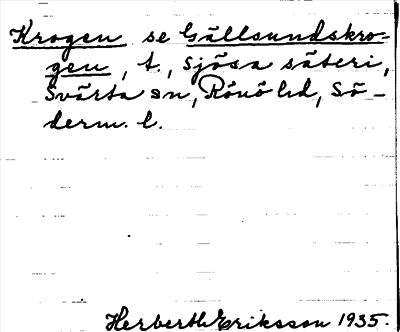 Krogen se Gällsundskro-
gen, t., Sjösa säteri,
Svärta sn, Rönö hd, Sö-
derm. l.
Herbert Eriksson 1935.